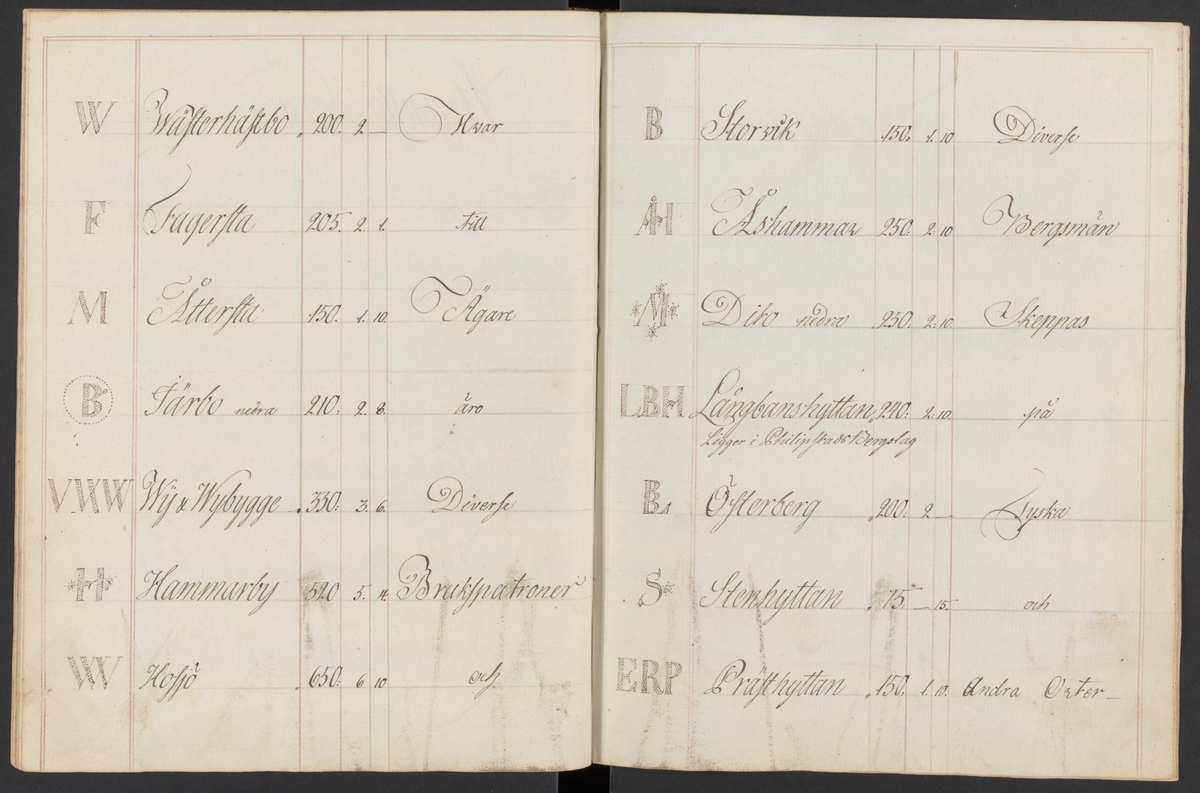 W Wästerhästbo 200. 2 — Hvar
F Fagersta 205. 2. 1. till
M Åttersta 150. 1. 10. Ägare
B Järbo nedra 210. 2. 8. äro
VWW Wij & Wybygge 330. 3. 6. Diverse
H Hammarby 520 5. 4. Brukspatroner
W Hofjö 650. 6 10 och
B Storvik 150. 1. 10 Diverse
ÅH Åshammar 250. 2. 10 Bergsmän
M Dito nedra 250. 2. 10. Skeppas
LBH Långbanshyttan 240. 2. 10. på
Ligger i Philipstads Bergslag
B Österberg 200. 2 — Tyska
S Stenhyttan 75. — 15. och
ERP Prästhyttan 150. 1. 10. Andra Orter–